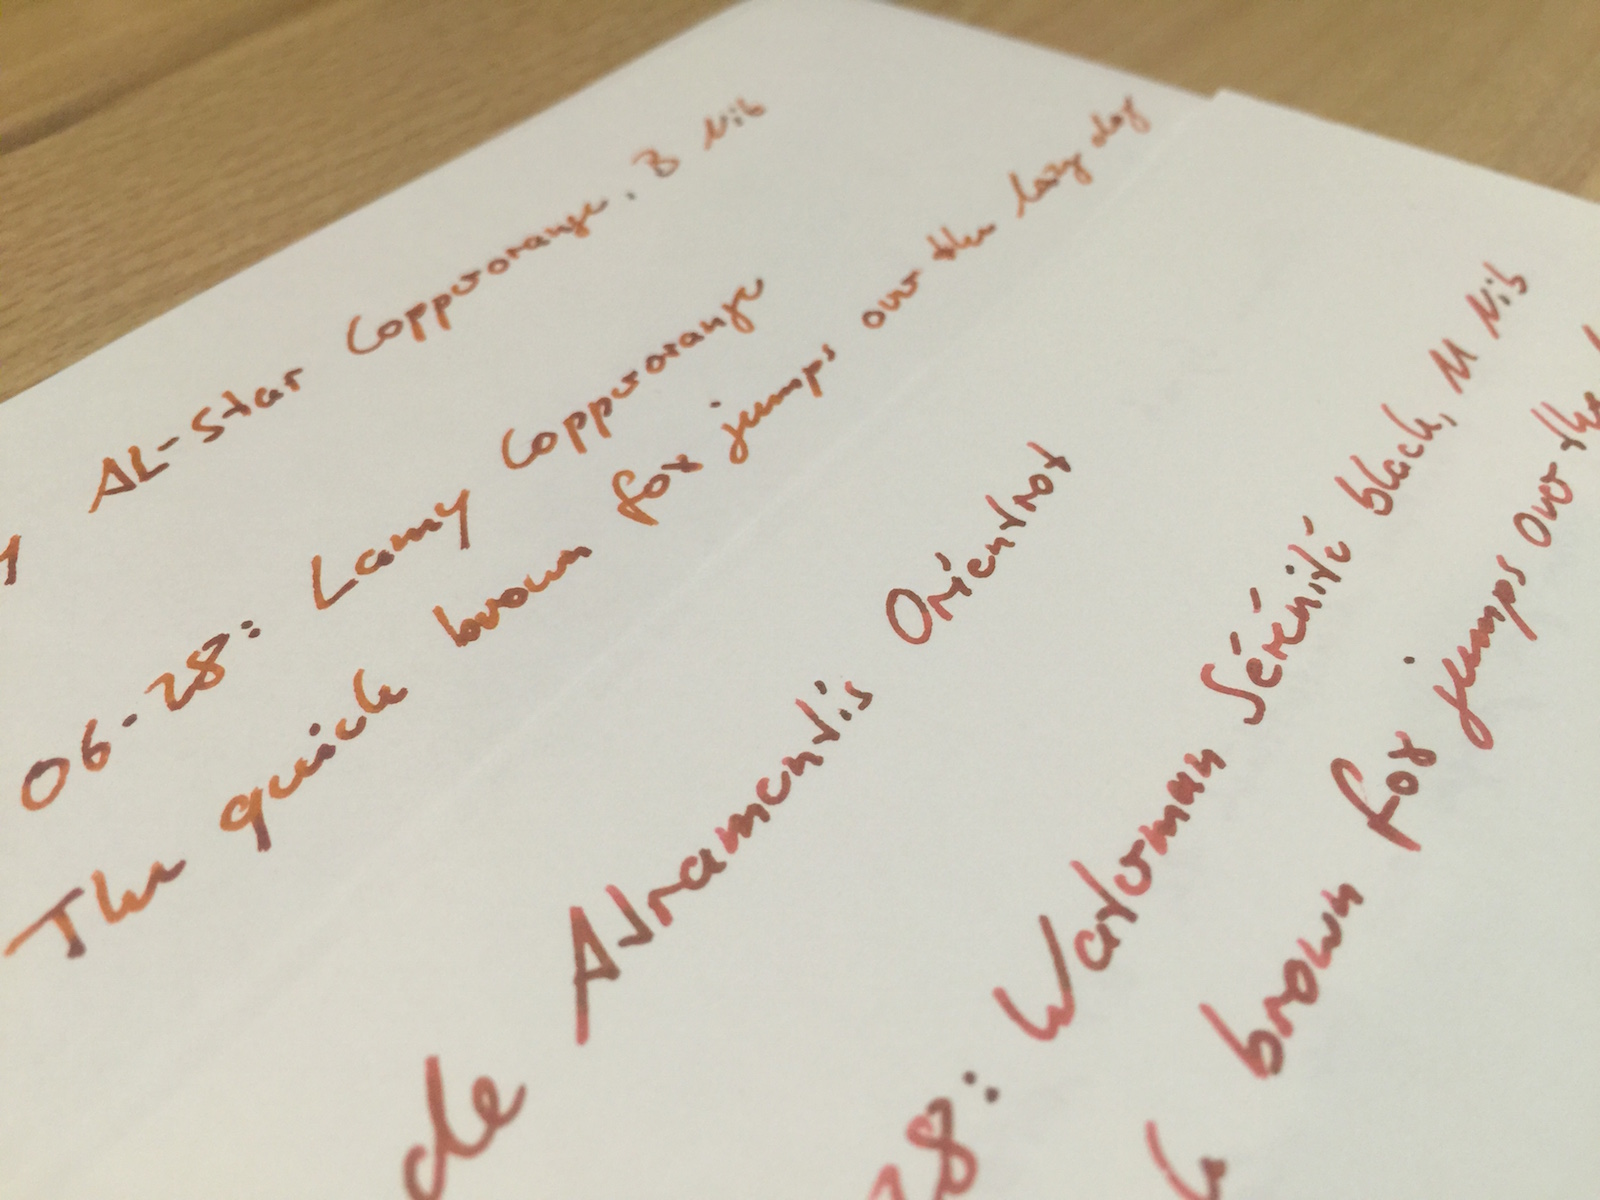 y AL-Star Copperorange, B Nib
06-28: Lamy Copperorange
The quick brown fox jumps over the lazy dog
de Atramentis Orientrot
28: Waterman Sérénité black, M Nib
brown fox jumps over the